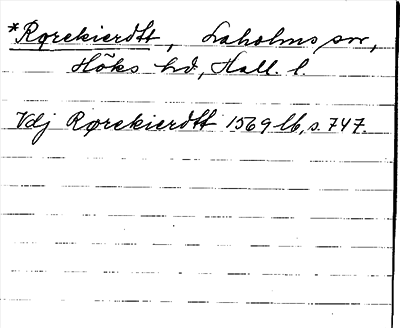 *Rørekierdtt, Laholms sn,
Höks hd, Hall. l.
Vdj Rørekierdtt 1569 lb, s. 747.